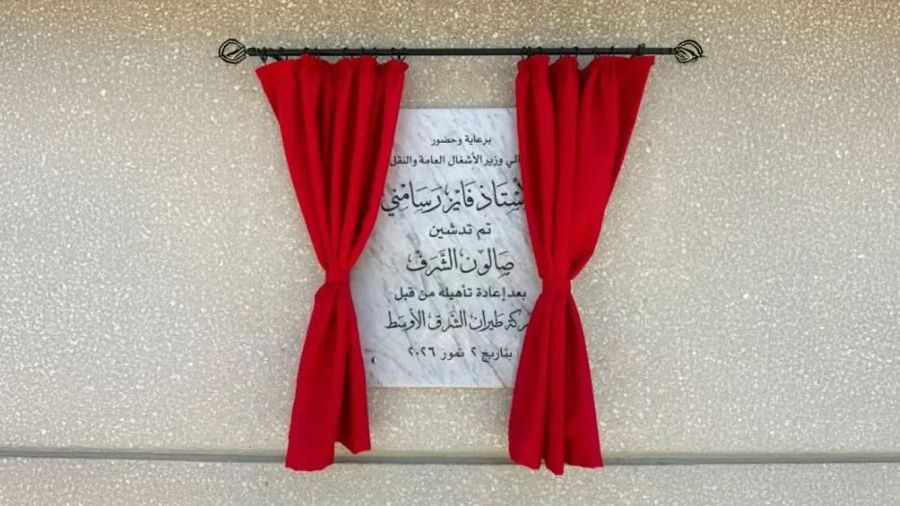 برعاية وحضور
الي وزير الأشغال العامة والنقل
أستاذ فايز رسامني
تم تدشين
صالون الشرف
بعد إعادة تأهيله من قبل
ركة طيران الشرق الأوسط
بتاريخ ٢ تموز ٢٠٢٦